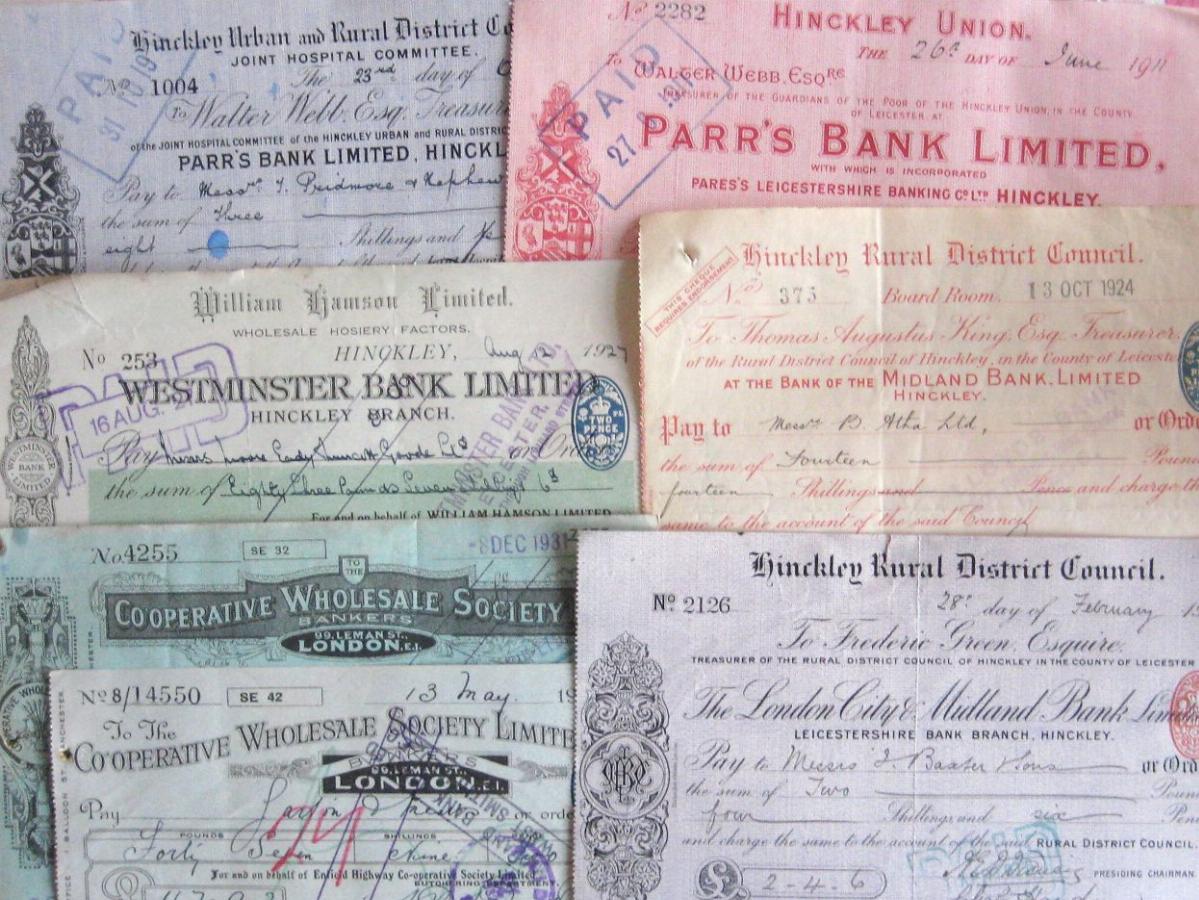 Hinckley Urban and Rural District Co
JOINT HOSPITAL COMMITTEE.
No 1004 The 23rd day of
To Walter Webb, Esq. Treasur
of the JOINT HOSPITAL COMMITTEE of the HINCKLEY URBAN and RURAL DISTRIC
PARR'S BANK LIMITED, HINCKL
Pay to Messrs. J. Pridmore & Nephew
the sum of Three
eight Shillings and
PAID
31 10 19
No 2282 HINCKLEY UNION.
THE 26th DAY OF June 1911
To WALTER WEBB, ESQRE
TREASURER OF THE GUARDIANS OF THE POOR OF THE HINCKLEY UNION, IN THE COUNTY
OF LEICESTER, AT
PARR'S BANK LIMITED,
WITH WHICH IS INCORPORATED
PARES'S LEICESTERSHIRE BANKING CO. LTD. HINCKLEY.
PAID
William Hamson Limited.
WHOLESALE HOSIERY FACTORS.
No 253 HINCKLEY, Aug 12 1927
WESTMINSTER BANK LIMITED
HINCKLEY BRANCH.
Pay Messrs or Ord
the sum of Eighty three Pounds Seven
For and on behalf of WILLIAM HAMSON LIMITED
PAID
16 AUG. 27
TWO PENCE
WESTMINSTER BANK LIMITED
THIS CHEQUE
REQUIRES ENDORSEMENT
Hinckley Rural District Council.
No 375 Board Room, 13 OCT 1924
To Thomas Augustus King, Esq. Treasurer
of the Rural District Council of Hinckley, in the County of Leiceste
AT THE BANK OF THE MIDLAND BANK, LIMITED
HINCKLEY.
Pay to Messrs B. Atha Ltd, or Orde
the sum of Fourteen Pound
fourteen Shillings and Pence and charge th
same to the account of the said Council
No. 4255 SE 32 -8 DEC 1931
TO THE
CO-OPERATIVE WHOLESALE SOCIETY
BANKERS
99, LEMAN ST.,
LONDON, E.1.
No 8/14550 SE 42 13 May 19
To The
CO-OPERATIVE WHOLESALE SOCIETY LIMITE
BANKERS
99, LEMAN ST.,
LONDON, E.1.
Pay or orde
POUNDS SHILLINGS
Forty Seven Nine
For and on behalf of Enfield Highway Co-operative Society Limited
BUTCHERING DEPARTMENT.
Hinckley Rural District Council.
No 2126 28th day of February 1
To Frederic Green, Esquire,
TREASURER OF THE RURAL DISTRICT COUNCIL OF HINCKLEY IN THE COUNTY OF LEICESTER
The London City & Midland Bank Limit
LEICESTERSHIRE BANK BRANCH, HINCKLEY.
Pay to Messrs J. Baxter & Sons or Ord
the sum of Two Poun
four Shillings and six Pen
and charge the same to the account of the said RURAL DISTRICT COUNCIL.
£ 2-4-6 PRESIDING CHAIRMAN.